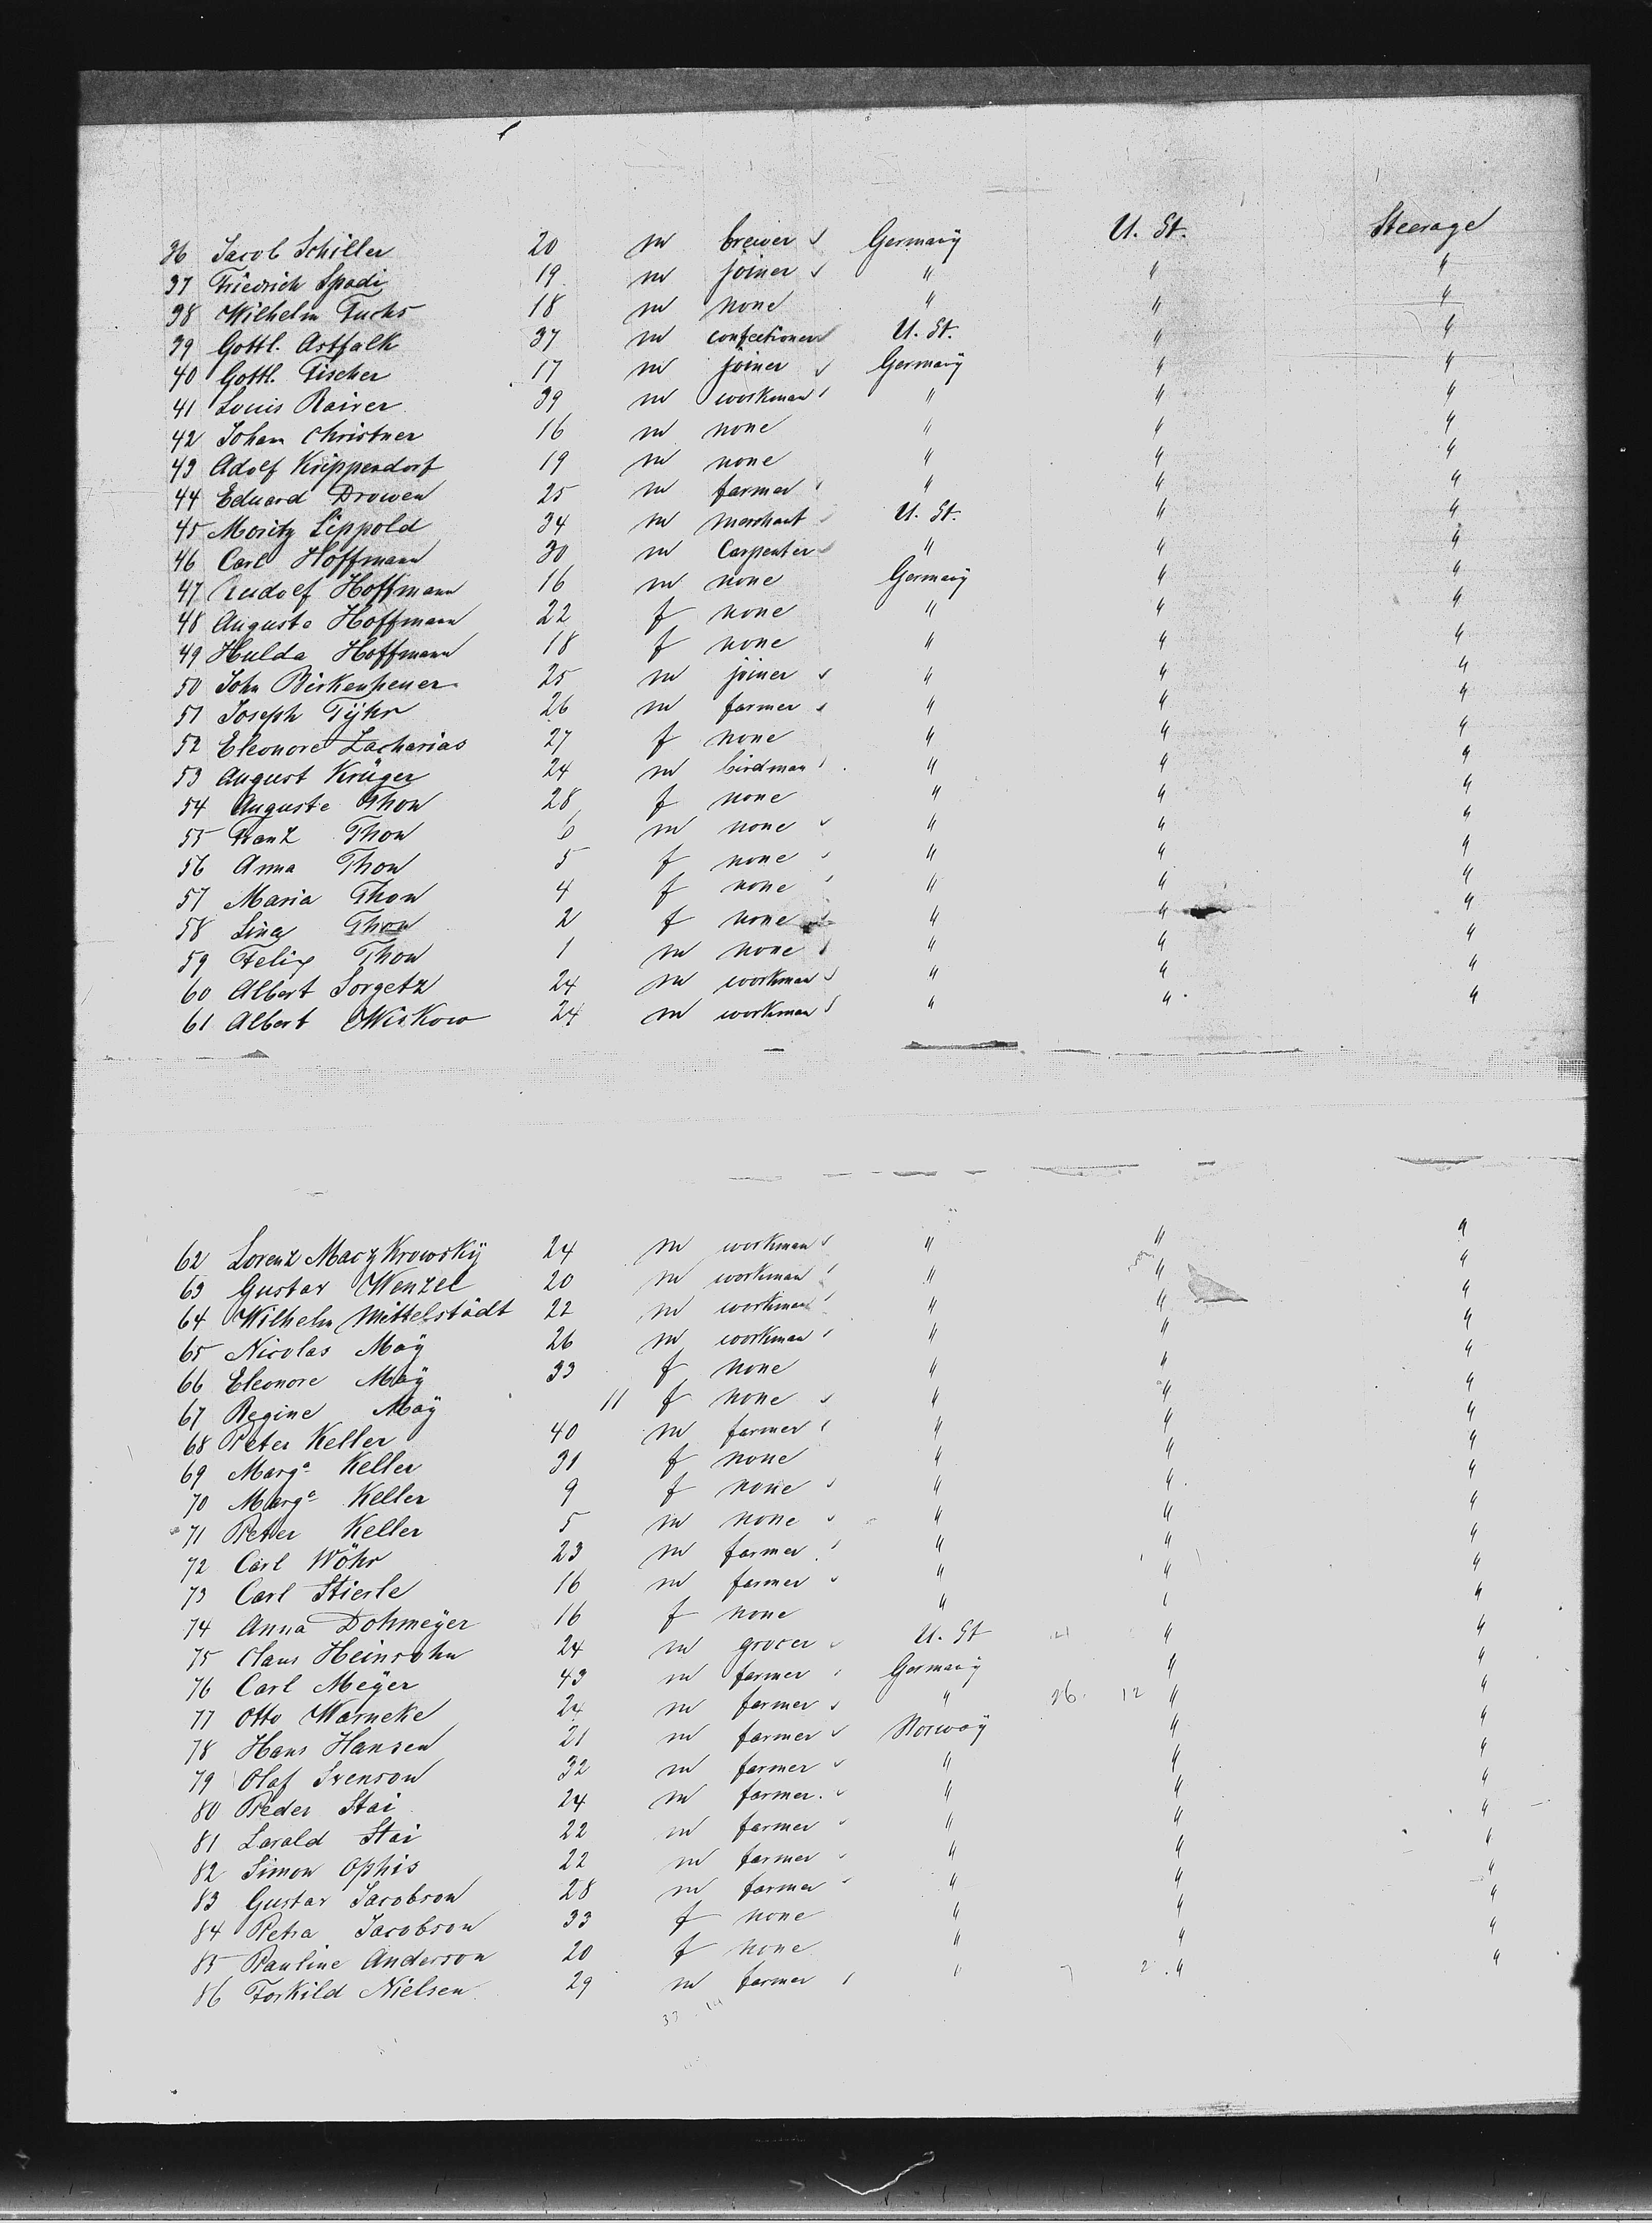 36 Jacob Schiller 20 m brewer Germany U. St. Steerage
37 Friedrich Spadi 19 m joiner " " "
38 Wilhelm Fuchs 18 m none " " "
39 Gottl. Astfalk 37 m confectioner U. St. " "
40 Gottl. Fischer 17 m joiner Germany " "
41 Louis Rairer 39 m workman " " "
42 Johan Christner 16 m none " " "
43 Adolf Krippendorf 19 m none " " "
44 Eduard Drowen 25 m farmer " " "
45 Moritz Lippold 34 m merchant U. St. " "
46 Carl Hoffmann 30 m Carpenter " " "
47 Rudolf Hoffmann 16 m none Germany " "
48 Auguste Hoffmann 22 f none " " "
49 Hulda Hoffmann 18 f none " " "
50 John 25 m joiner " " "
51 Joseph 26 m farmer " " "
52 Eleonore Zacharias 27 f none " " "
53 August Krüger 24 m birdman " " "
54 Auguste Thon 28 f none " " "
55 Franz Thon 6 m none " " "
56 Anna Thon 5 f none " " "
57 Maria Thon 4 f none " " "
58 Lina Thon 2 f none " " "
59 Felix Thon 1 m none " " "
60 Albert Sorgetz 24 m workman " " "
61 Albert Wiskow 24 m workman " " "
62 Lorenz Maczkrowskÿ 24 m workman " " "
63 Gustav Wenzel 20 m workman " " "
64 Wilhelm Mittelstädt 22 m workman " " "
65 Nicolas Maÿ 26 m workman " " "
66 Eleonore Maÿ 33 f none " " "
67 Regine Maÿ 11 f none " " "
68 Peter Keller 40 m farmer " " "
69 Marge Keller 31 f none " " "
70 Marge Keller 9 f none " " "
71 Peter Keller 5 m none " " "
72 Carl Wöhr 23 m farmer " " "
73 Carl Stierle 16 m farmer " " "
74 Anna Dohmeÿer 16 f none " " "
75 Claus Heinsohn 24 m grocer U. St " "
76 Carl Meÿer 43 m farmer Germany " "
77 Otto Warneke 24 m farmer " 26. 12 " "
78 Hans Hansen 21 m farmer Norway " "
79 Olaf Svenson 32 m farmer " " "
80 Peder Stai 24 m farmer. " " "
81 Larald Stai 22 m farmer " " "
82 Simon Ophis 22 m farmer " " "
83 Gustav Jacobson 28 m farmer " " "
84 Petra Jacobson 33 f none " " "
85 Pauline Anderson 20 f none " " "
86 Torkild Nielsen 29 m farmer " 2 " "